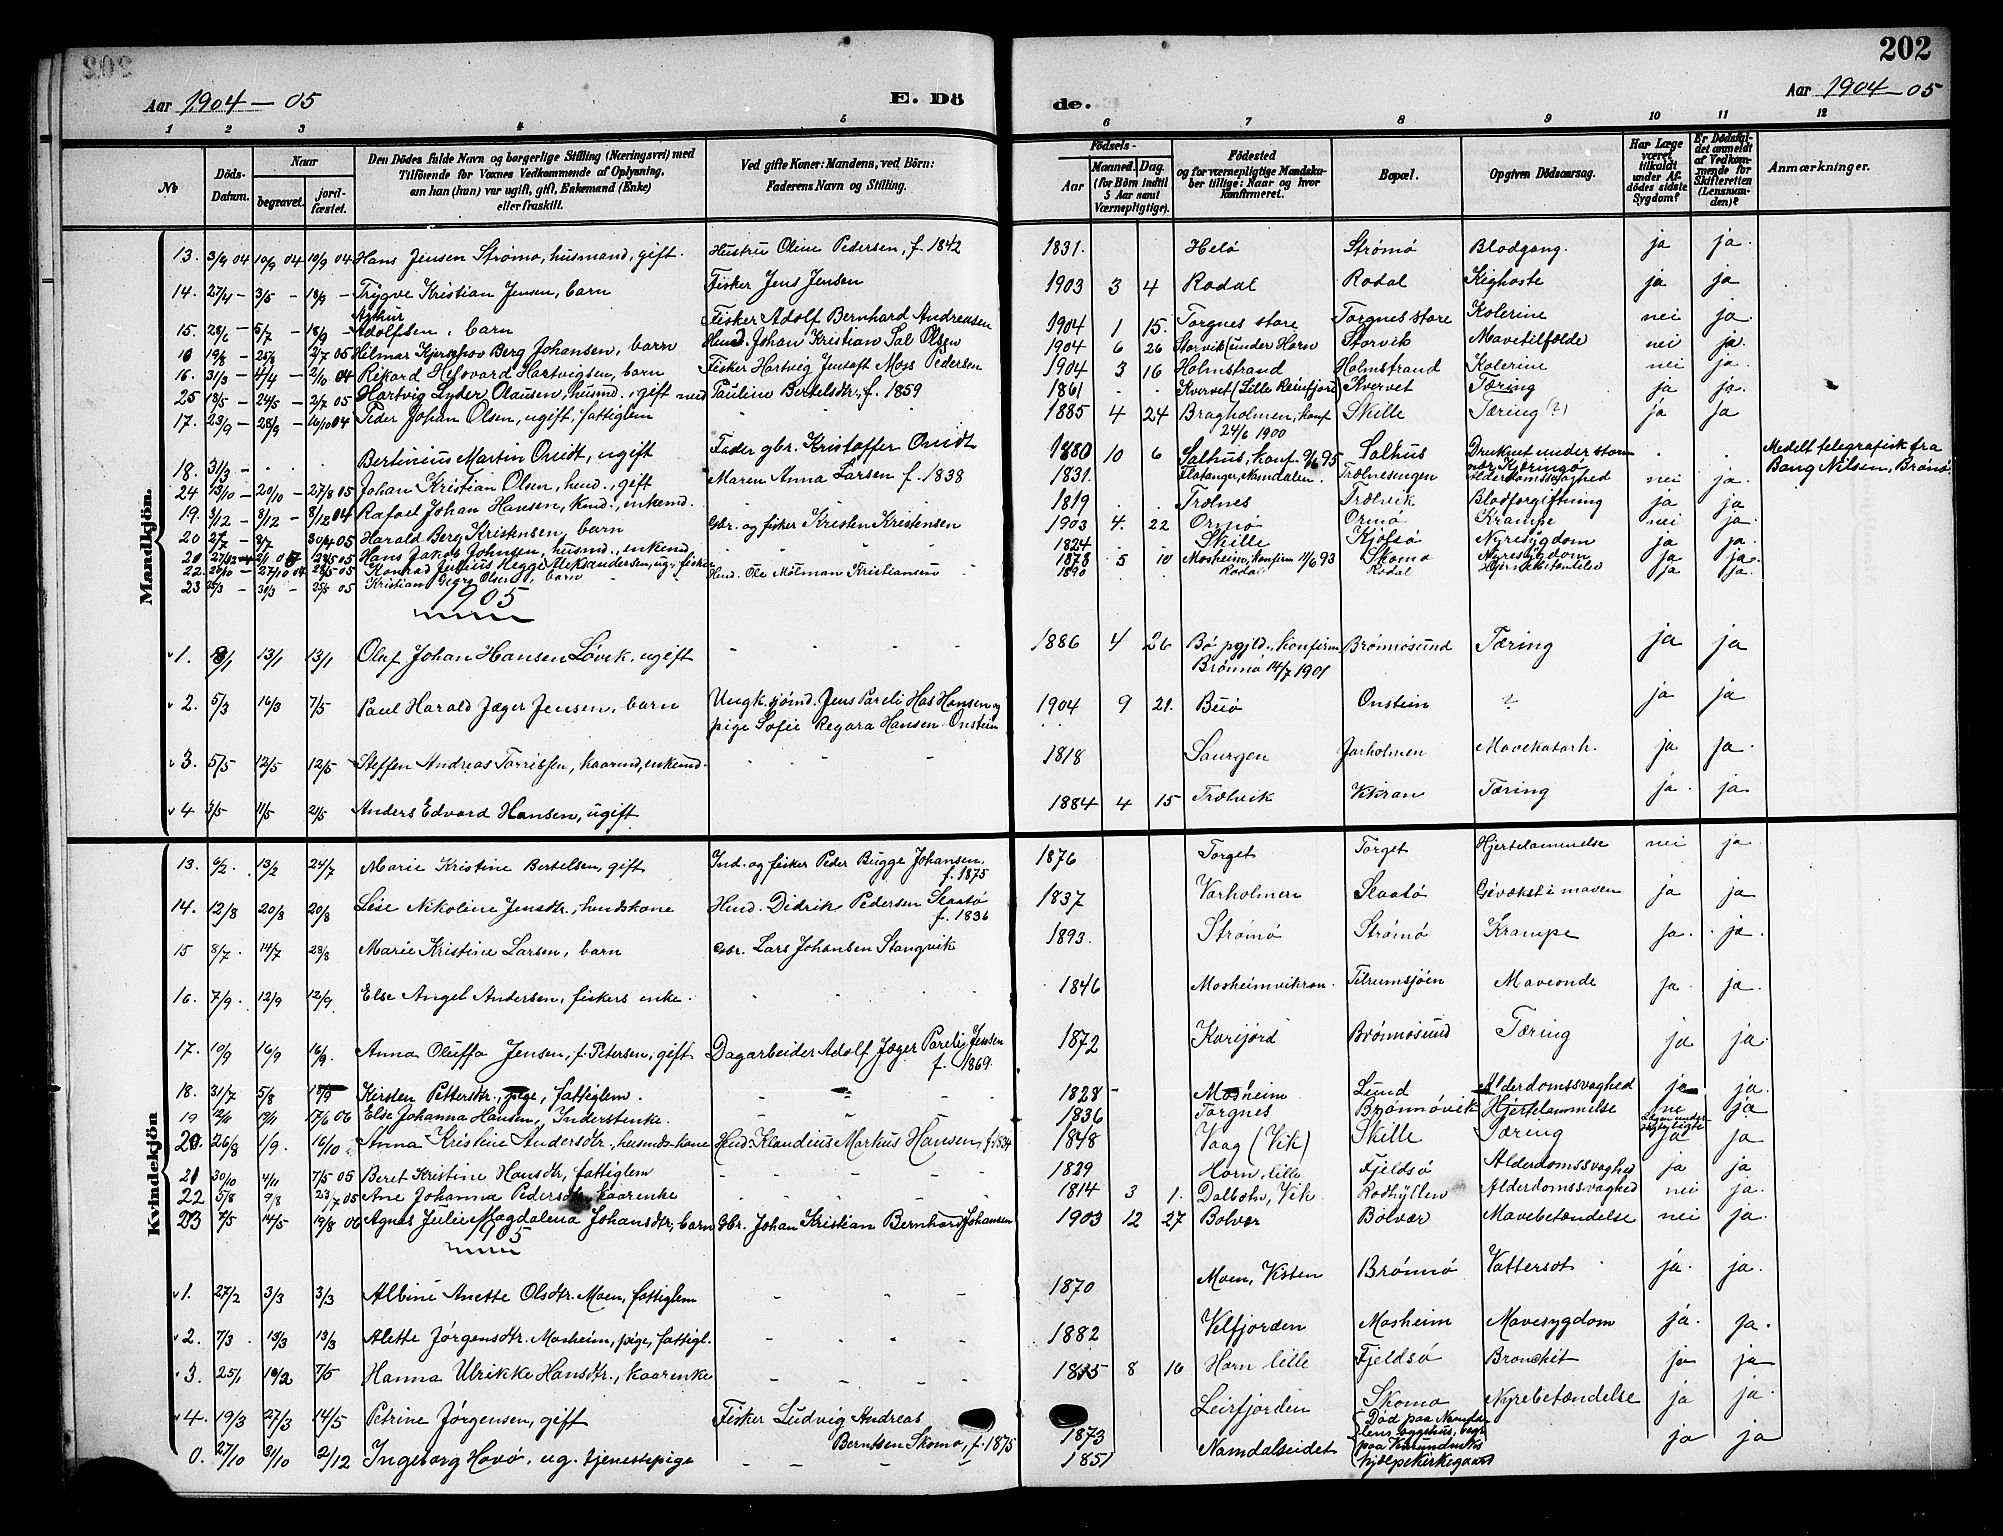 202
Aar 1904 — 05
E. Dö
de.
Aar 1904 — 05
1 2 3 4 5 6 7 8 9 10 11 12
No
Döds-Datum.
Naar
begravet.
jordfæstet.
Den Dödes fulde Navn og borgerlige Stilling (Næringsvei) med Tilföiende for Voxnes Vedkommende af Oplysning, om han (hun) var ugift, gift, Enkemand (Enke) eller fraskilt.
Ved gifte Koner: Mandens, ved Börn: Faderens Navn og Stilling.
Födsels-
Aar
Maaned. Dag. (for Börn indtil 5 Aar samt Værnepligtige).
Födested og for værnepligtige Mandskaber tillige: Naar og hvor konfirmeret.
Bopæl.
Opgiven Dödsaarsag.
Har Læge været tilkaldt under Afdödes sidste Sygdom?
Er Dödsfaldet anmeldt af Vedkommende for Skifteretten (Lensmanden)?
Anmærkninger.
Mandkjön.
13. 3/9 04 10/9 04 10/9 04 Hans Jensen Strömö, husmand, gift. Hustru Oline Pedersen, f. 1842 1831. Helö Strömö Blodgang. ja ja.
14. 27/4 — 3/5 — 18/9 — Trygve Kristian Jensen, barn Fisker Jens Jensen 1903 3 4 Rodal Rodal Kighoste ja ja
15. 28/6 — 5/7 — 18/9 — Arthur Adolfsen, barn Fisker Adolf Bernhard Andreassen 1904 1 15. Torgnes store Torgnes store Kolerine nei ja.
19/8 — 25/8 2/7 05 Hilmar Berg Johansen, barn Husd. Johan Kristian Sal Olsen 1904 6 26 Storvik (under Horn Storvik Mavetilfælde nei ja.
16. 31/3 — 4/4 — 2/10 04 Rikard Håvard Hartvigsen, barn Fisker Hartvig Jentoft Moss Pedersen 1904 3 16 Holmstrand Holmstrand Kolerine nei ja
25 18/5 — 24/5 — 2/7 05 Hartvig Lyder Olausen, husmd., gift med Pauline Bertelsdtr., f. 1859 1861 Kvervet (Lille Reinfjord) Kvervet Tæring ja ja.
17. 23/9 — 28/9 — 26/10 04 Peder Johan Olsen, ugift, fattiglem 1885 4 24 Bragholmen, konf 24/6 1900 Skille Tæring (?) ja ja
18. 31/3 — Bertinius Martin Qvidt, ugift Fader gbr. Kristoffer Qvidt 1880 10 6 Salhus, konf. 11/6 95 Salhus Druknet under storm nær Kjeringö Meddelt telegrafisk fra Bang Nilsen, Brönö.
24 13/10 — 20/10 — 27/8 05 Johan Kristian Olsen, husd., gift Maren Anna Larsen f. 1838 1831. Flatanger, Namdalen. Trælnesengen Alderdomssvaghed nei ja.
19. 3/12 — 8/12 — 8/12 04 Rafael Johan Hansen, husmd., enkemd. 1819 Trælnes Trælvik Blodforgiftning ja ja
20 2/7 — 8/7 30/4 05 Harald Berg Kristensen, barn Gbr. og fisker Kristen Kristensen 1903 4. 22 Ormö Ormö Krampe nei ja.
Hans Jakob Johnsen, husmd., enkemd 1824 Skille Kjölsö Nyresygdom ja ja.
22 Konrad Julius Hegge Aleksandersen, ug., fisker 1878 5 10 Mosheim, konfirm 11/6 93 Skomo Nyresygdom ja ja.
23 25/3 — 30/3 — 25/5 05 Kristian Georg Olsen, barn Husd. Ole Mölman Kristiansen 1890 Rodal Rodal Hjernebetændelse ja ja.
1905
1. 8/1 13/1 13/1 Oluf Johan Hansen Lövik, ugift 1886 4 26 Bö pgjld., konfirm Brönnö 14/7 1901 Brönnösund Tæring ja ja
2. 5/3 16/3 7/5 Paul Harald Jæger Jensen, barn Ungk. sjömd. Jens Pareli Has Hansen og pige Sofie Regara Hansen Onstein 1904 9 21. Beiö Onstein ? ja ja
3. 5/5 12/5 12/5 Steffen Andreas Torrissen, kaarmd, enkemd. 1818 Saurgen Jarholmen Mavekatarh. ja ja.
4 3/5 11/5 21/5 Anders Edvard Hansen, ugift 1884 4 15 Trælvik Vikran Tæring ja. ja
Kvindekjön
13. 6/2. 13/2 24/7 Marie Kristine Bertelsen, gift Ind. og fisker Peder Bugge Johansen, f. 1875 1876 Torget Torget Hjertelammelse nei ja.
14. 12/8 20/8 20/8 Leie Nikoline Jensdtr., husdskone Husd. Didrik Pedersen Slaatö f. 1836 1837 Varholmen Slaatö Gevækst i maven ja ja
15 8/7. 14/7 28/8 Marie Kristine Larsen, barn Gbr. Lars Johansen Stangvik 1893. Strömö Strömö Krampe ja. ja.
16. 7/9. 12/9 12/9 Else Angel Andersen, fiskers enke. 1846 Mosheimvikran. Tilremsjöen Maveonde ja. ja.
17. 10/9 16/9 16/9. Anna Oluffa Jensen, f. Petersen, gift Dagarbeider Adolf Jæger Pareliy Jensen f. 1869. 1872 Karijord Brönnösund Tæring ja ja.
18. 31/7 5/8 18/9 Kirsten Pettersdtr., pige, fattiglem. 1828 Mosheim Lund Alderdomssvaghed ja ja.
19 12/11 19/11 17/6 06 Else Johanna Hansen, Inderstenke. 1836 Torgnes Brönnövik Hjertelammelse ne ja
20. 26/8 1/9. 16/10 Anna Kristine Andersdtr., husmdskone Husd. Klaudius Markus Hansen, f. 1834 1848 Vaag (Vik) Skille Tæring ja ja
21 30/10 4/11 7/5 05 Beret Kristine Hansdtr., fattiglem 1829 Horn, lille Fjeldsö Alderdomssvaghed ja ja
22 5/8 9/8 23/7 05 Ane Johanna Pedersdtr. kaarenke 1814 3 1. Dalbotn, Vik. Rödhyllen Alderdomssvaghed nei ja.
23 7/5 14/5 19/8 06 Agnes Julie Magdalena Johansdtr., barn Gbr. Johan Kristian Bernhard Johansen 1903 12 27 Bolvær Bolvær Mavebetændelse nei ja.
1905
1. 27/2 3/3 3/3 Albine Anette Olsdtr. Moen, fattiglem 1870 Moen, Visten Brönnö Vattersot ja. ja.
2. 7/3. 13/3 13/3 Alette Jörgensdtr. Mosheim, pige, fattigl. 1882 Velfjorden Mosheim Mavesygdom ja. ja.
3. 25/1 10/2 7/5 Hanna Ulrikke Hansdtr., kaarenke 8 16 Horn lille Fjeldsö Bronchit ja ja
4. 19/3 27/3 14/5 Petrine Jörgensen, gift Fisker Ludvig Andreas Berntsen Skomo, f. 1875 1873 Leirfjorden Skomo Nyrebetændelse ja ja.
0. 27/10 31/10 2/12 Ingeborg Hovö, ug. tjenestepige 1851 Namdalseidet Död paa Namdalens sygehus, begr paa hjælpekirkegaard ja ja